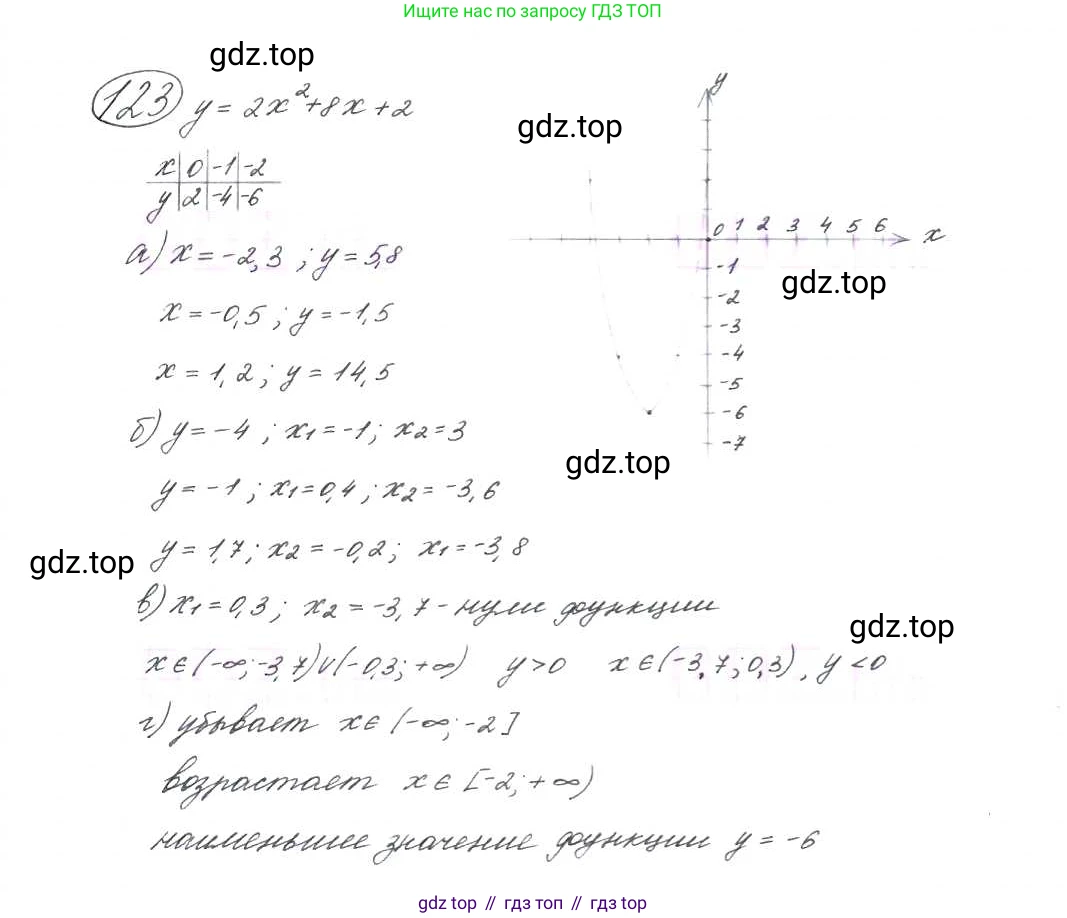 Ищите нас по запросу ГДЗ ТОП
gdz.top
123 y = 2x²+8x+2
x | 0 | -1 | -2
y | 2 | -4 | -6
gdz.top
y
0 1 2 3 4 5 6 x
-1
-2
-3
-4
-5
-6
-7
gdz.top
а) x = -2,3 ; y = 5,8
x = -0,5 ; y = -1,5
x = 1,2 ; y = 14,5
б) y = -4 ; x1 = -1; x2 = 3
gdz.top
y = -1 ; x1 = 0,4 ; x2 = -3,6
gdz.top
y = 1,7; x2 = -0,2; x1 = -3,8
в) x1 = 0,3; x2 = -3,7 - нули функции
gdz.top
x ∈ (-∞; -3,7) ∪ (-0,3; +∞) y > 0 x ∈ (-3,7; 0,3), y < 0
г) убывает x ∈ (-∞; -2]
возрастает x ∈ [-2; +∞)
наименьшее значение функции y = -6
gdz top // гдз топ // gdz top